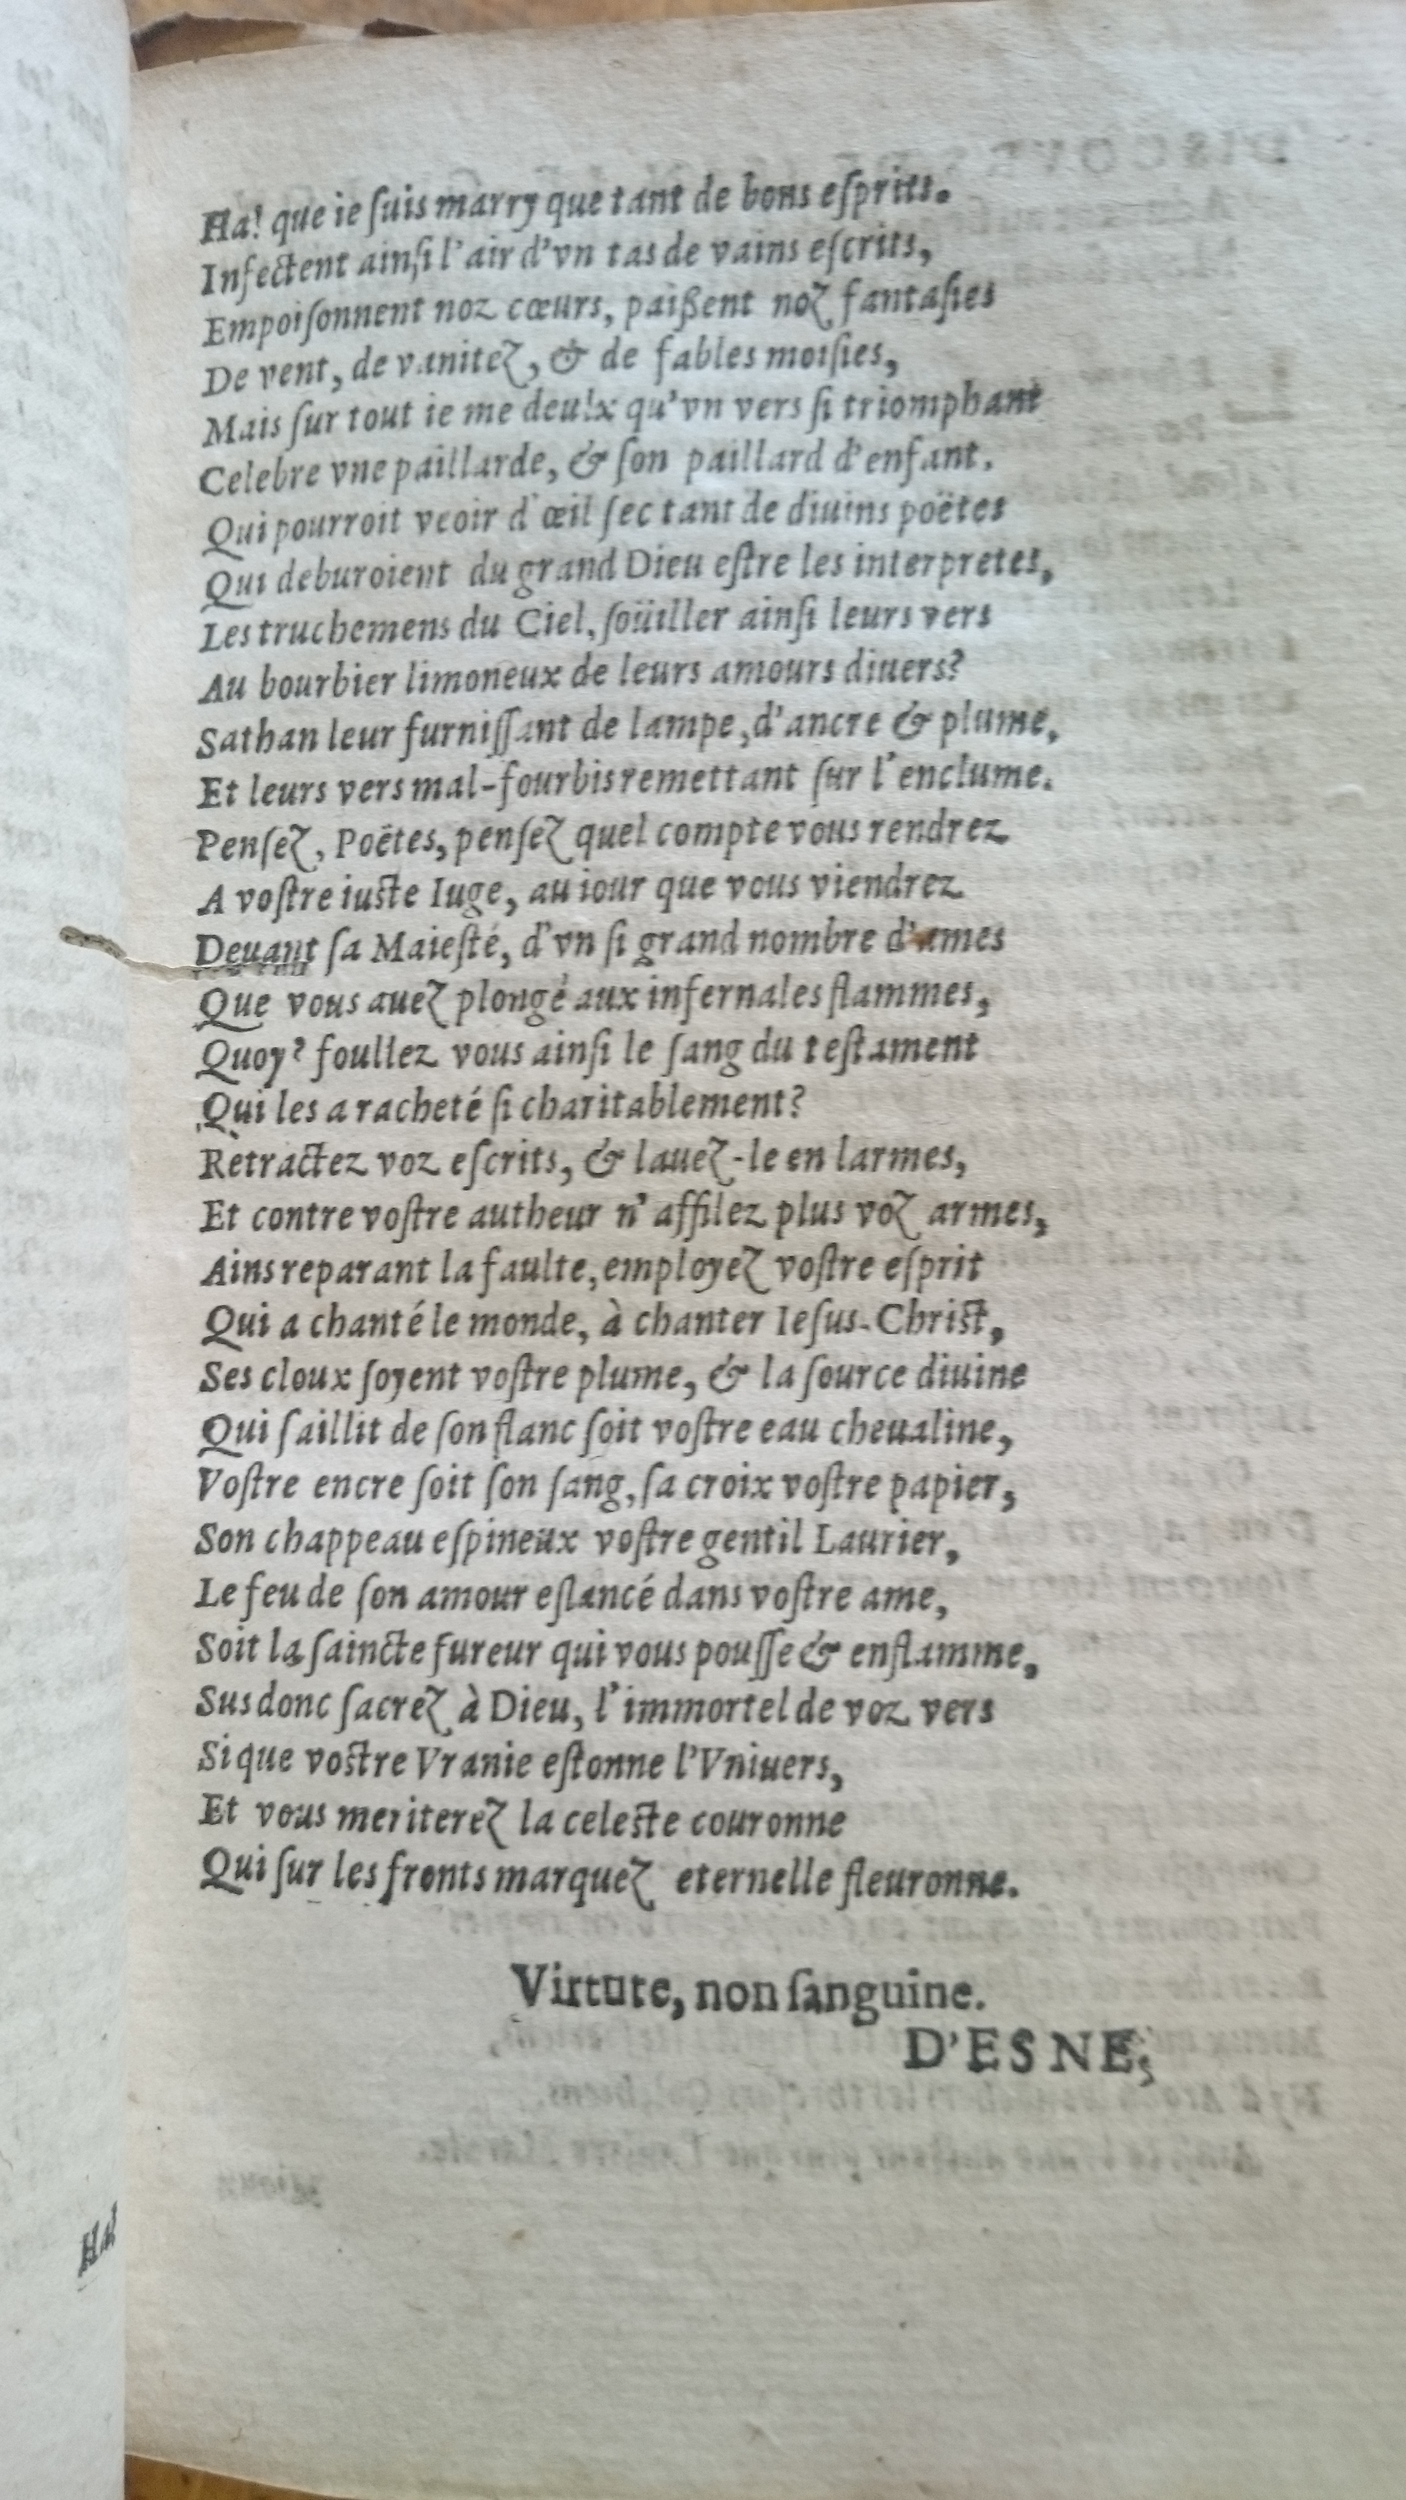 Ha! que ie ſuis marry que tant de bons eſprits.
Infectent ainſi l'air d'vn tas de vains eſcrits,
Empoiſonnent noz cœurs, paißent noz fantaſies
De vent, de vanitez, & de fables moiſies,
Mais ſur tout ie me deulx qu'vn vers ſi triomphant
Celebre vne paillarde, & ſon paillard d'enfant.
Qui pourroit veoir d'œil ſec tant de diuins poëtes
Qui deburoient du grand Dieu eſtre les interpretes,
Les truchemens du Ciel, ſoüiller ainſi leurs vers
Au bourbier limoneux de leurs amours diuers?
Sathan leur furniſſant de lampe, d'ancre & plume,
Et leurs vers mal-fourbis remettant ſur l'enclume.
Penſez, Poëtes, penſez quel compte vous rendrez
A voſtre iuste Iuge, au iour que vous viendrez
Deuant ſa Maieſté, d'vn ſi grand nombre d'ames
Que vous auez plongé aux infernales flammes,
Quoy? foullez vous ainſi le ſang du teſtament
Qui les a racheté ſi charitablement?
Retractez voz eſcrits, & lauez-le en larmes,
Et contre voſtre autheur n'affilez plus voz armes,
Ains reparant la faulte, employez voſtre eſprit
Qui a chanté le monde, à chanter Ieſus-Christ,
Ses cloux ſoyent voſtre plume, & la ſource diuine
Qui ſaillit de ſon flanc ſoit voſtre eau cheualine,
Voſtre encre ſoit ſon ſang, ſa croix voſtre papier,
Son chappeau eſpineux voſtre gentil Laurier,
Le feu de ſon amour eſlancé dans voſtre ame,
Soit la ſaincte fureur qui vous pouſſe & enflamme,
Sus donc ſacrez à Dieu, l'immortel de voz vers
Si que vostre Vranie eſtonne l'Vniuers,
Et vous meriterez la celeste couronne
Qui ſur les fronts marquez eternelle fleuronne.
Virtute, non ſanguine.
D'ESNE,
Ha!